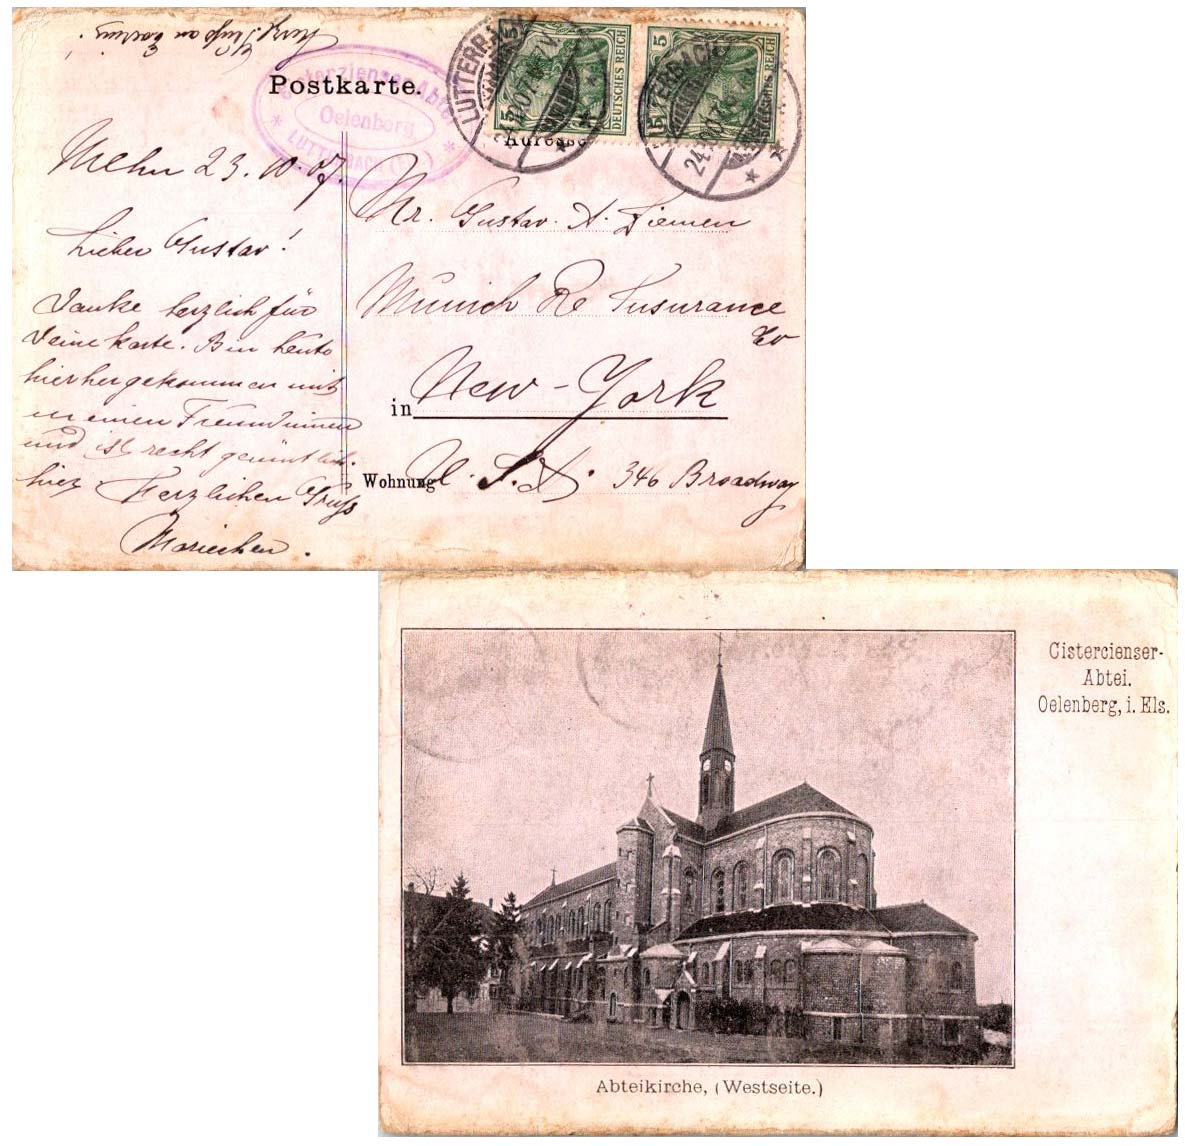 Postkarte.
Zisterzienser Abtei
Oelenberg
LUTTERBACH
LUTTERBACH
5
DEUTSCHES REICH
5
DEUTSCHES REICH
LUTTERBACH
24.10.07
Adresse
23. 10. 07.
Lieber Gustav!
Danke herzlich für
Deine Karte. Bin heute
hierhergekommen mit
meinen Freundinnen
und ist recht gemütlich
hier. Herzlichen Gruss
Mariechen.
Mr. Gustav. A. Ziemen
Munich Re Insurance
Co
in New-York
Wohnung U. S. A. 346 Broadway
Cistercienser-
Abtei.
Oelenberg, i. Els.
Abteikirche, (Westseite.)